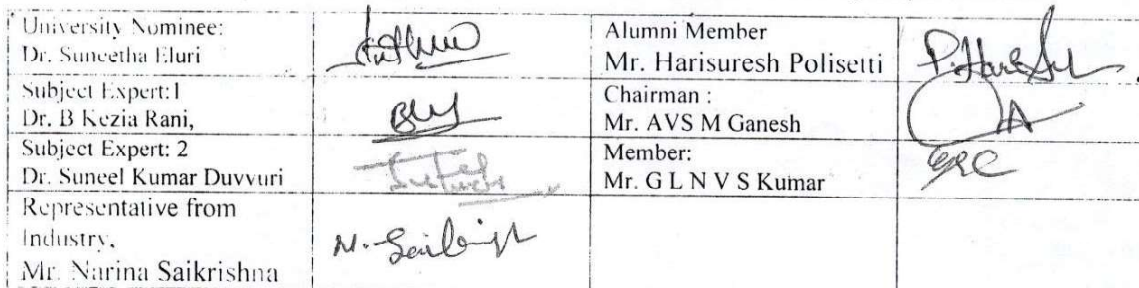 University Nominee:
Dr. Suneetha Eluri
Alumni Member
Mr. Harisuresh Polisetti
P. Hare
Subject Expert:1
Dr. B Kezia Rani,
Chairman :
Mr. AVS M Ganesh
Subject Expert: 2
Dr. Suneel Kumar Duvvuri
Member:
Mr. G L N V S Kumar
Representative from
Industry,
Mr. Narina Saikrishna